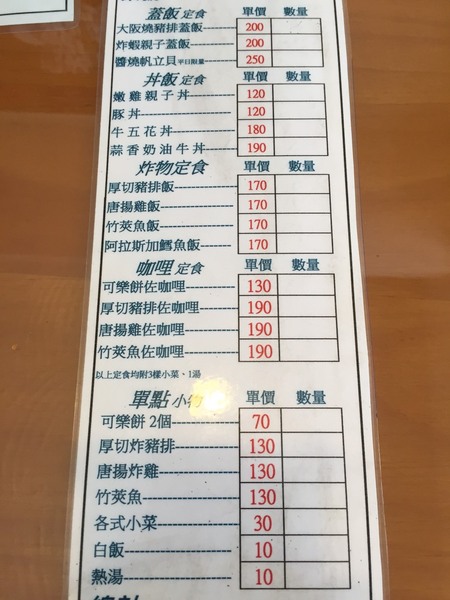 蓋飯 定食 單價 數量
大阪燒豬排蓋飯 200
炸蝦親子蓋飯 200
醬燒帆立貝 平日限量 250
丼飯 定食 單價 數量
嫩雞親子丼 120
豚丼 120
牛五花丼 180
蒜香奶油牛丼 190
炸物定食 單價 數量
厚切豬排飯 170
唐揚雞飯 170
竹莢魚飯 170
阿拉斯加鱈魚飯 170
咖哩 定食 單價 數量
可樂餅佐咖哩 130
厚切豬排佐咖哩 190
唐揚雞佐咖哩 190
竹莢魚佐咖哩 190
以上定食均附3樣小菜、1湯
單點 小物 單價 數量
可樂餅 2個 70
厚切炸豬排 130
唐揚炸雞 130
竹莢魚 130
各式小菜 30
白飯 10
熱湯 10